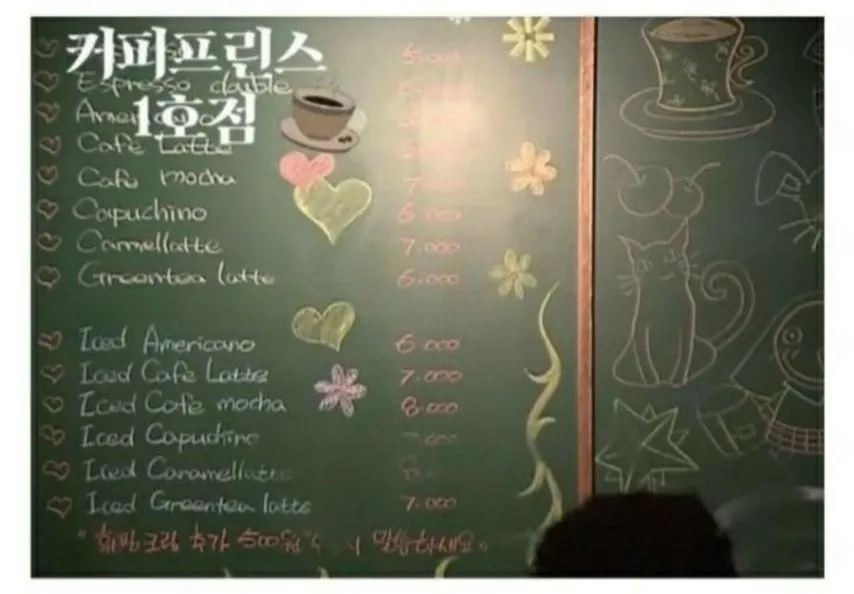 커피프린스
1호점
5.000
Espresso double
Americano
Cafe Latte
Cafe mocha
Capuchino 6.000
Caramellatte 7.000
Greentea latte 6.000
Iced Americano 6.000
Iced Cafe Latte 7.000
Iced Cafe mocha 8.000
Iced Capuchino
Iced Caramellatte
Iced Greentea latte 7.000
휘핑크림 추가 500원 말씀하세요。